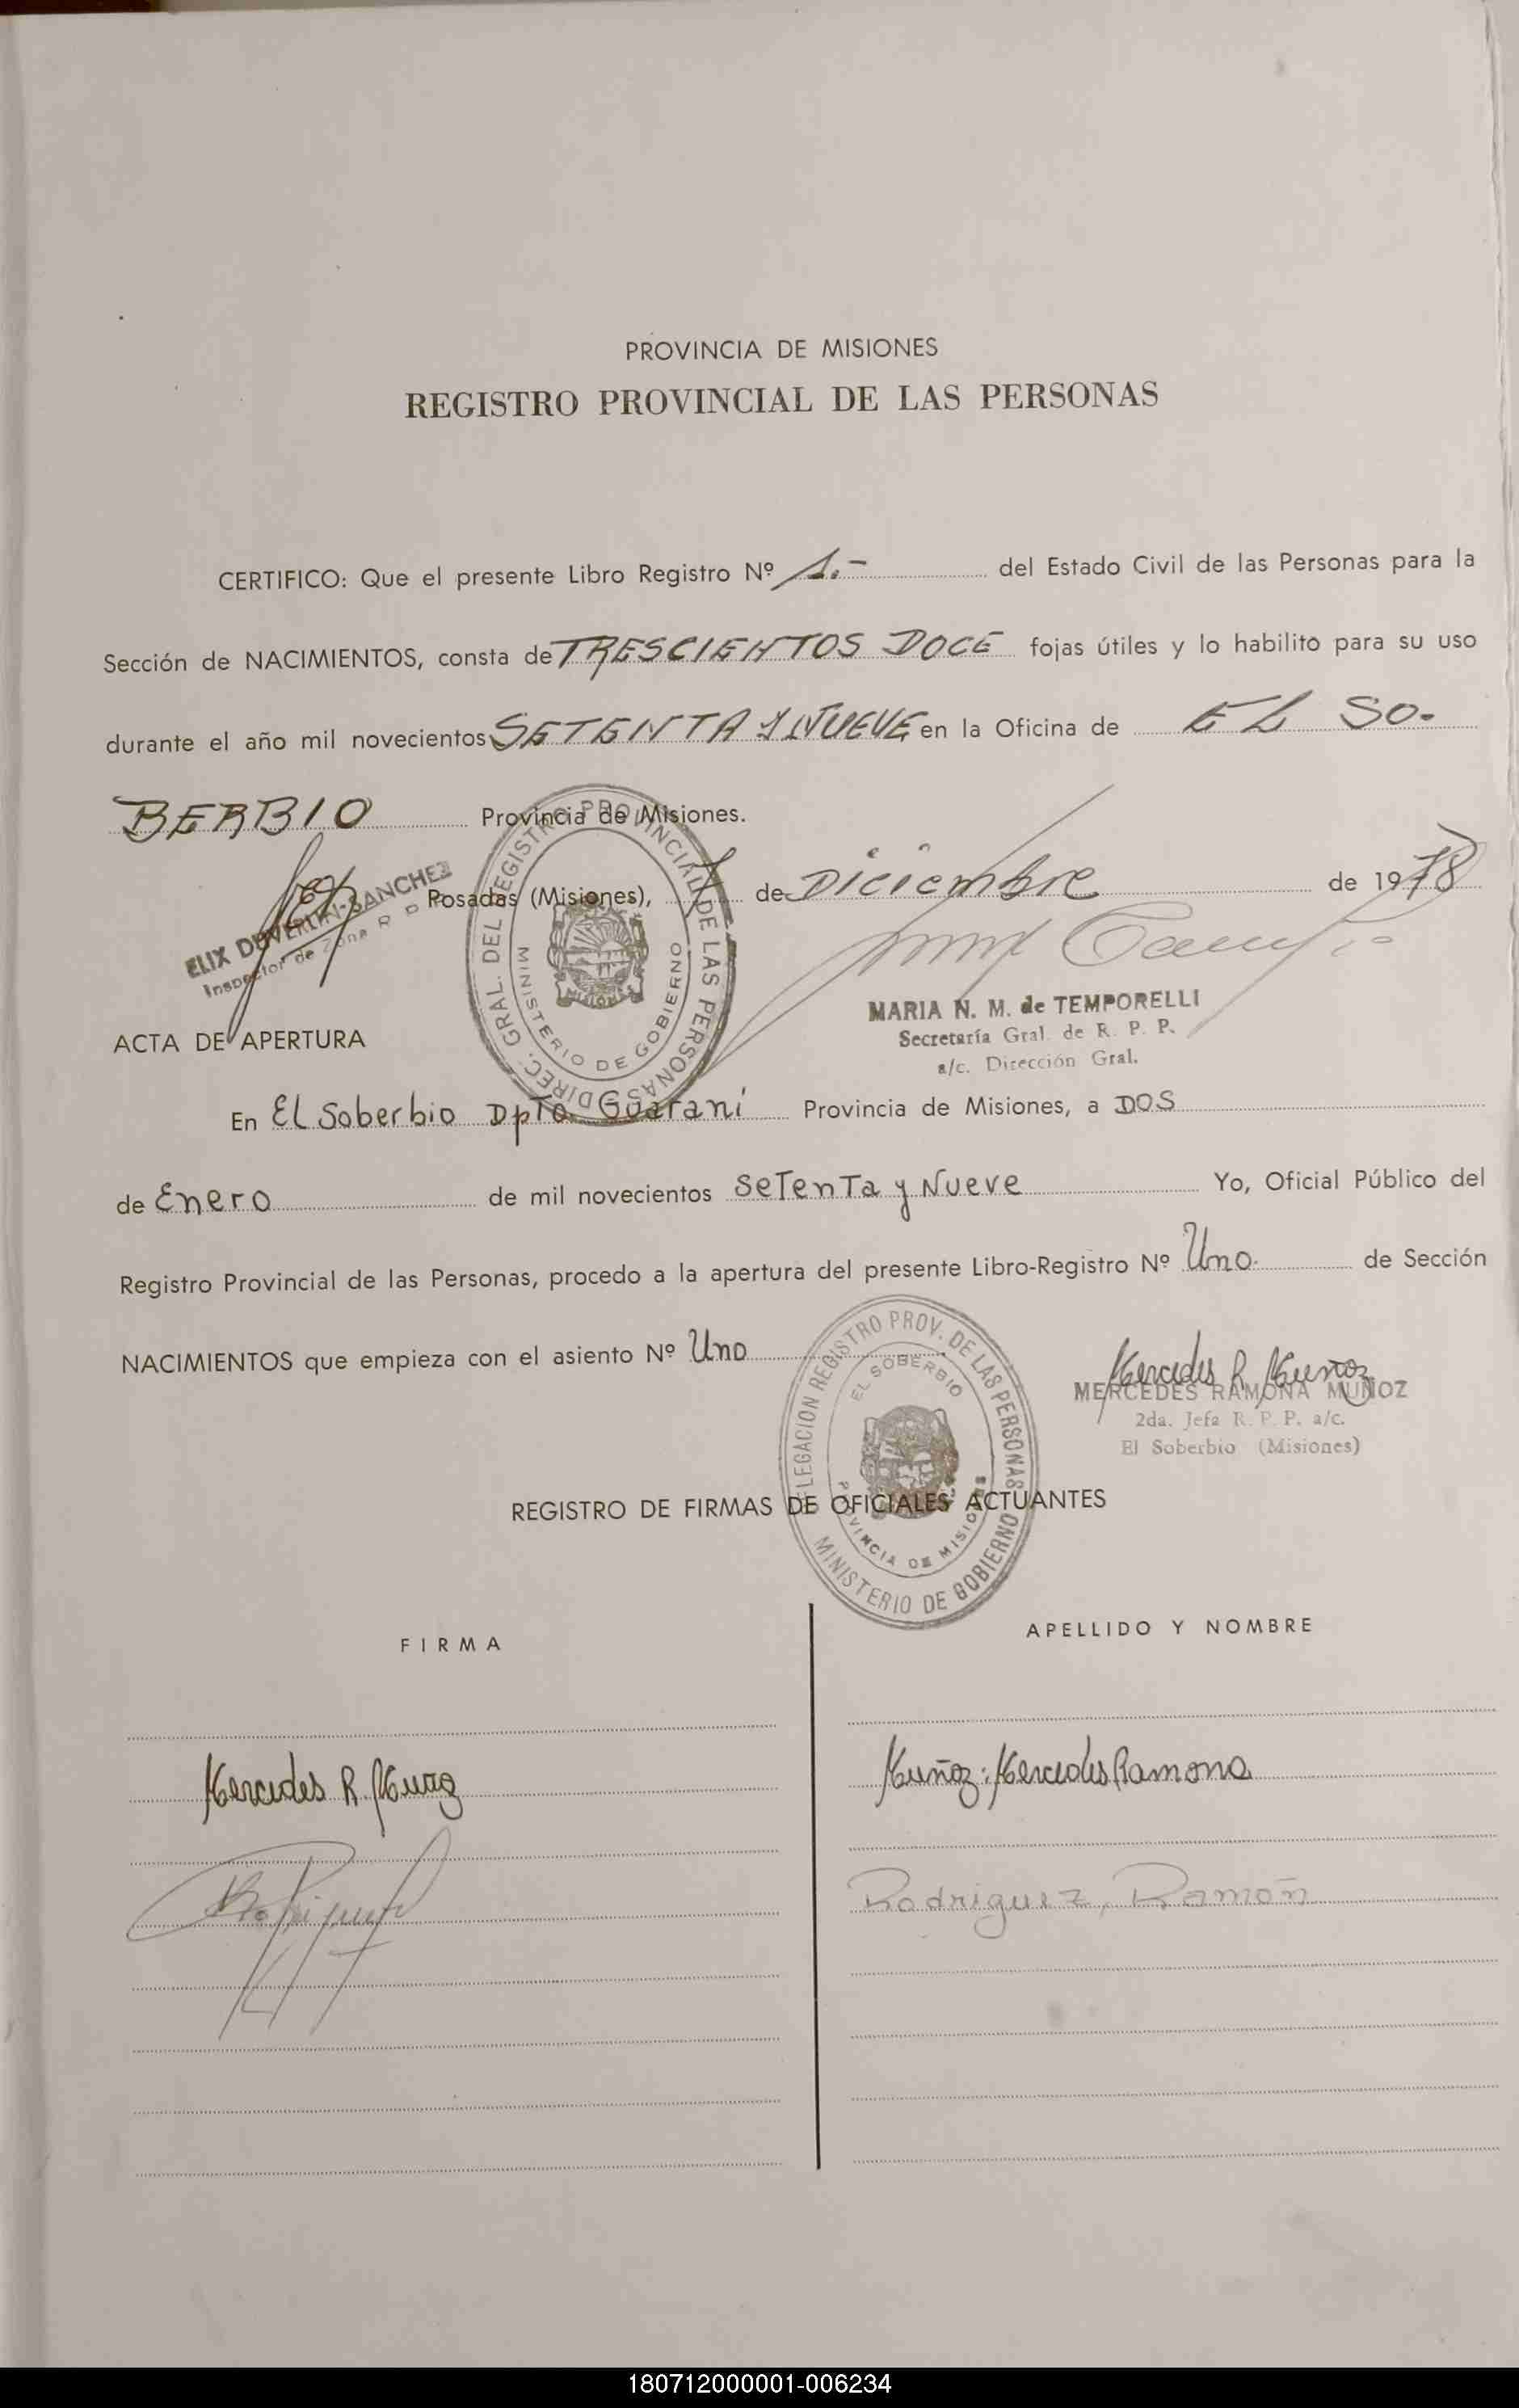 PROVINCIA DE MISIONES
REGISTRO PROVINCIAL DE LAS PERSONAS
CERTIFICO: Que el presente Libro Registro Nº 1.- del Estado Civil de las Personas para la
Sección de NACIMIENTOS, consta de TRESCIENTOS DOCE fojas útiles y lo habilito para su uso
durante el año mil novecientos SETENTA Y NUEVE en la Oficina de EL SO-
BERBIO Provincia de Misiones.
Posadas (Misiones), de Diciembre de 1978
ELIX DUVERLIN SANCHEZ
Inspector de Zona R P
DIREC. GRAL. DEL REGISTRO PROVINCIAL DE LAS PERSONAS
MINISTERIO DE GOBIERNO
MISIONES
MARIA N. M. de TEMPORELLI
Secretaría Gral. de R. P. P.
a/c. Dirección Gral.
ACTA DE APERTURA
En El Soberbio Dpto. Guaraní Provincia de Misiones, a DOS
de Enero de mil novecientos Setenta y Nueve Yo, Oficial Público del
Registro Provincial de las Personas, procedo a la apertura del presente Libro-Registro Nº Uno. de Sección
NACIMIENTOS que empieza con el asiento Nº Uno
Mercedes R. Muñoz
MERCEDES RAMONA MUÑOZ
2da. Jefa R. P. P. a/c.
El Soberbio (Misiones)
DELEGACION REGISTRO PROV. DE LAS PERSONAS
EL SOBERBIO
PROVINCIA DE MISIONES
MINISTERIO DE GOBIERNO
REGISTRO DE FIRMAS DE OFICIALES ACTUANTES
FIRMA APELLIDO Y NOMBRE
Mercedes R. Muñoz Muñoz: Mercedes Ramona
Rodriguez, Ramón
180712000001-006234